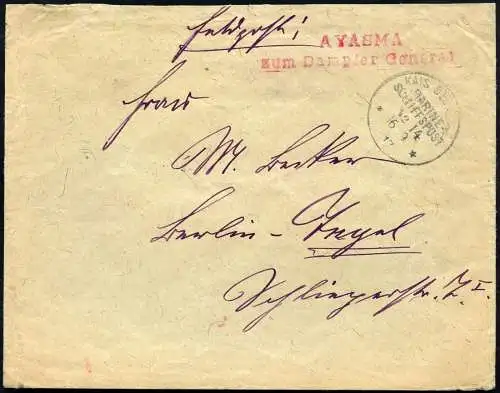 Feldpost!
AYASMA
zum Dampfer General
KAIS. DEUT.
MARINE-
SCHIFFSPOST
No 14
* 16 9 *
17
Frau
M. Becker
Berlin-Tegel
Schlieperstr. 7 I.